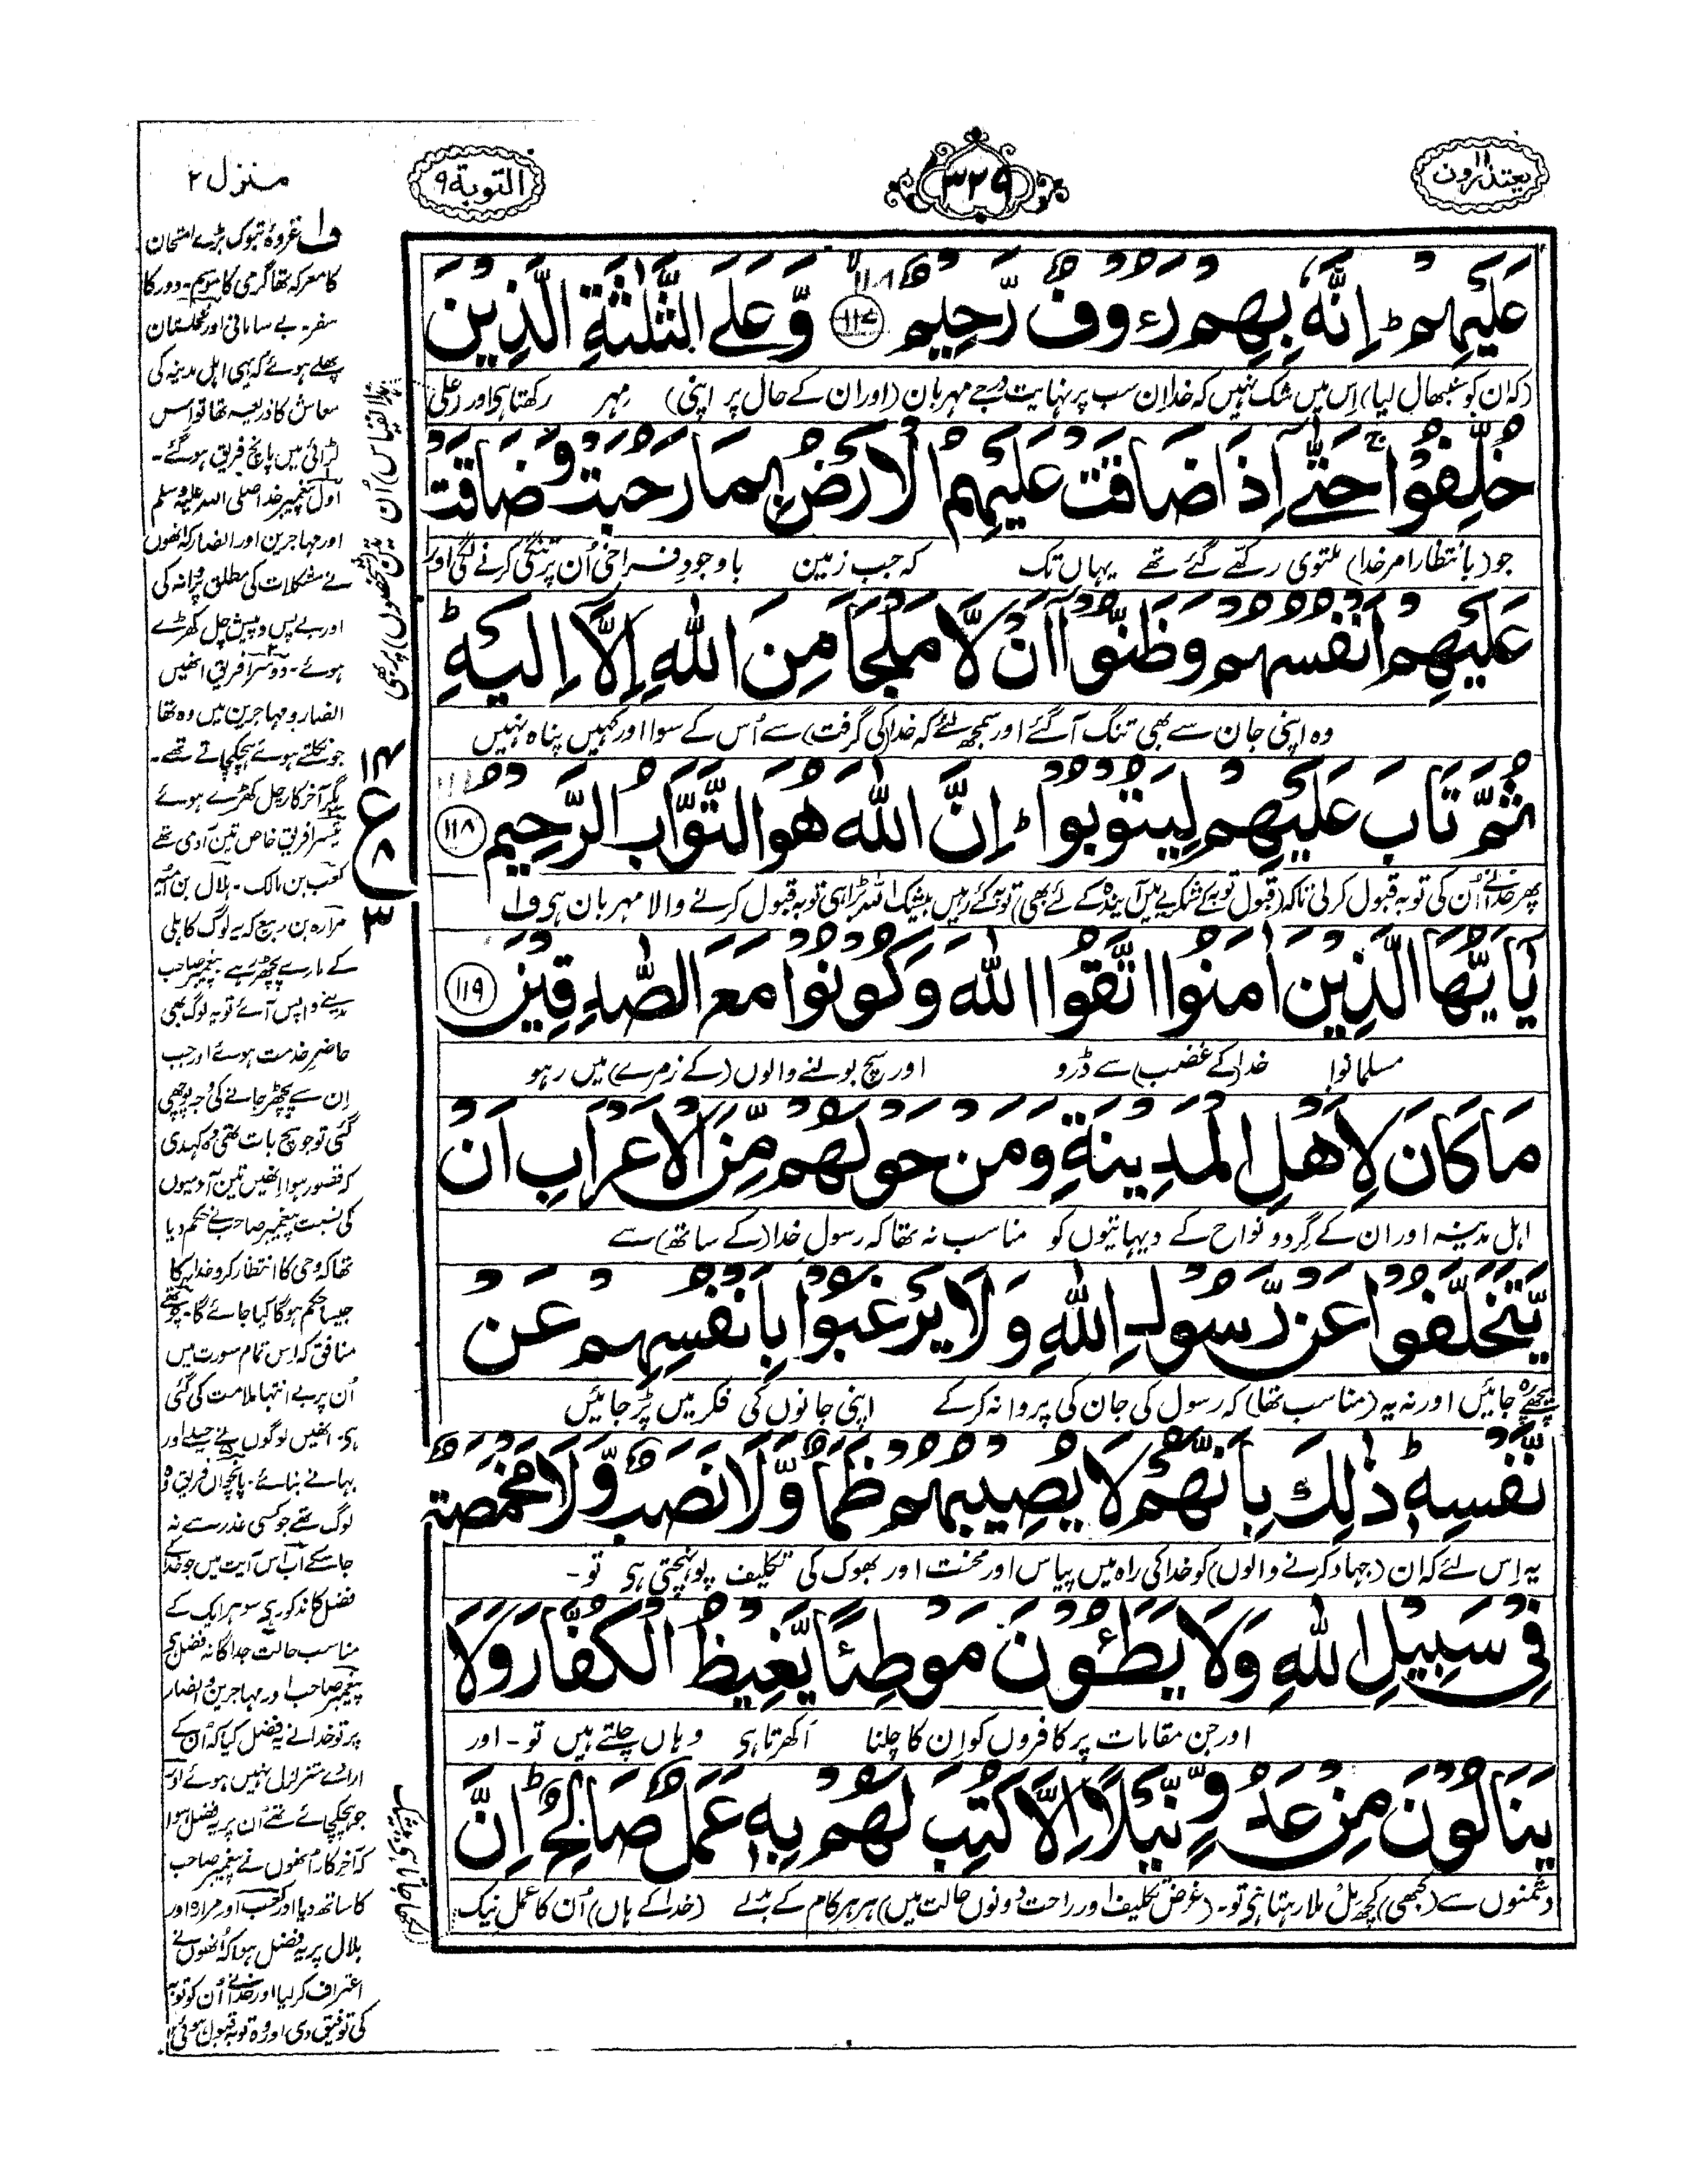 یعتذرون ۱۱
۳۲۹
التوبة ۹
منزل ۲
عَلَيْهِمْ ؕ اِنَّهٗ بِهِمْ رَءُوْفٌ رَّحِيْمٌ ﴿۱۱۷﴾ وَّعَلَى الثَّلٰثَةِ الَّذِيْنَ
(کہ ان کو سنبھال لیا) اِس میں شک نہیں کہ خدا ان سب پر نہایت درجے مہربان (اور ان کے حال پر اپنی) مہر رکھتا ہی اور (علی
خُلِّفُوْا ؕ حَتّٰۤى اِذَا ضَاقَتْ عَلَيْهِمُ الْاَرْضُ بِمَا رَحُبَتْ وَضَاقَتْ
جو (بانتظار امر خدا) ملتوی رکھے گئے تھے یہاں تک کہ جب زمین باوجود فراخی اُن پر تنگی کرنے لگی اور
عَلَيْهِمْ اَنْفُسُهُمْ وَظَنُّوْۤا اَنْ لَّا مَلْجَاَ مِنَ اللّٰهِ اِلَّاۤ اِلَيْهِ ؕ
وہ اپنی جان سے بھی تنگ آگئے اور سمجھ لئے کہ خدا (کی گرفت) سے اُس کے سوا اور کہیں پناہ نہیں
ثُمَّ تَابَ عَلَيْهِمْ لِيَتُوْبُوْا ؕ اِنَّ اللّٰهَ هُوَ التَّوَّابُ الرَّحِيْمُ ﴿۱۱۸﴾
پھر خدا نے اُن کی توبہ قبول کرلی تاکہ (قبول توبہ کے شکریے میں آیندہ کے لئے بھی) توبہ کئے رہیں بیشک اللہ بڑا ہی توبہ قبول کرنے والا مہربان ہی ف۱
يٰۤاَيُّهَا الَّذِيْنَ اٰمَنُوا اتَّقُوا اللّٰهَ وَكُوْنُوْا مَعَ الصّٰدِقِيْنَ ﴿۱۱۹﴾
مسلمانو! خدا (کے غضب) سے ڈرو اور سچ بولنے والوں (کے زمرے) میں رہو
مَا كَانَ لِاَهْلِ الْمَدِيْنَةِ وَمَنْ حَوْلَهُمْ مِّنَ الْاَعْرَابِ اَنْ
اہل مدینہ اور ان کے گرد و نواح کے دیہاتیوں کو مناسب نہ تھا کہ رسول خدا (کے ساتھ) سے
يَّتَخَلَّفُوْا عَنْ رَّسُوْلِ اللّٰهِ وَلَا يَرْغَبُوْا بِاَنْفُسِهِمْ عَنْ
پیچھے رہ جائیں اور نہ یہ (مناسب تھا) کہ رسول کی جان کی پروا نہ کرکے اپنی جانوں کی فکر میں پڑ جائیں
نَّفْسِهٖ ؕ ذٰلِكَ بِاَنَّهُمْ لَا يُصِيْبُهُمْ ظَمَاٌ وَّلَا نَصَبٌ وَّلَا مَخْمَصَةٌ
یہ اِس لئے کہ ان (جہاد کرنے والوں) کو خدا کی راہ میں پیاس اور محنت اور بھوک کی تکلیف پونہچتی ہی تو۔
فِيْ سَبِيْلِ اللّٰهِ وَلَا يَطَـُٔوْنَ مَوْطِئًا يَّغِيْظُ الْكُفَّارَ وَلَا
اور جن مقامات پر کافروں کو اِن کا چلنا اَکھرتا ہی وہاں چلتے ہیں تو۔ اور
يَنَالُوْنَ مِنْ عَدُوٍّ نَّيْلًا اِلَّا كُتِبَ لَهُمْ بِهٖ عَمَلٌ صَالِحٌ ؕ اِنَّ
دشمنوں سے (کبھی) کچھ مل ملا رہتا ہی تو۔ (غرض تکلیف اور راحت دونوں حالت میں) ہر ہر کام کے بدلے (خدا کے ہاں) اُن کا عمل نیک
ف۱ غزوۂ تبوک بڑے امتحان
کا معرکہ تھا گرمی کا موسم۔ دور کا
سفر۔ بے سامانی اور نخلستان
پھلے ہوئے کہ یہی اہل مدینہ کی
معاش کا ذریعہ تھا تو اس
لڑائی میں پانچ فریق ہوگئے۔
اول پیغمبر خدا صلی اللہ علیہ وسلم
اور مہاجرین اور انصار کہ انھوں
نے مشکلات کی مطلق پروا نہ کی
اور بے پس و پیش چل کھڑے
ہوئے۔ دوسرا فریق انھیں
انصار و مہاجرین میں وہ تھا
جو نکلتے ہوئے ہچکچاتے تھے۔
مگر آخرکار چل کھڑے ہوئے
تیسرا فریق خاص تین آدمی تھے
کعب بن مالک۔ ہلال بن امیہ
مرارہ بن ربیع کہ یہ لوگ کاہلی
کے مارے پچھڑ رہے پیغمبر صاحب
مدینے واپس آئے تو یہ لوگ بھی
حاضر خدمت ہوئے اور جب
اِن سے پچھڑ جانے کی وجہ پوچھی
گئی تو جو سچ بات تھی وہ کہدی
کہ قصور ہوا انھیں تین آدمیوں
کی نسبت پیغمبر صاحب نے حکم دیا
تھا کہ وحی کا انتظار کرو خدا کا
جیسا حکم ہوگا کیا جائے گا۔ چوتھے
منافق کہ اِس تمام سورت میں
اُن پر بے انتہا ملامت کی گئی
ہی۔ انھیں لوگوں نے حیلے اور
بہانے بنائے۔ پانچواں فریق وہ
لوگ تھے جو کسی عذر سے نہ
جاسکے اب اس آیت میں جو خدا کے
فضل کا مذکور ہی سو ہر ایک کے
مناسب حالت جداگانہ فضل ہی
پیغمبر صاحب اور مہاجرین و انصار
پر تو خدا نے یہ فضل کیا کہ اُن کے
ارادے متزلزل نہیں ہوئے اور
جو ہچکچائے تھے اُن پر یہ فضل ہوا
کہ آخرکار انھوں نے پیغمبر صاحب
کا ساتھ دیا اور کعب اور مرارہ اور
ہلال پر یہ فضل ہوا کہ انھوں نے
اعتراف کرلیا اور خدا نے اُن کو توبہ
کی توفیق دی اور وہ توبہ قبول ہوئی
ہذا القیاس) اُن تین شخصوں پر بھی
۱۴
ع
۸
۳
لکھا جاتا ہی بیشک